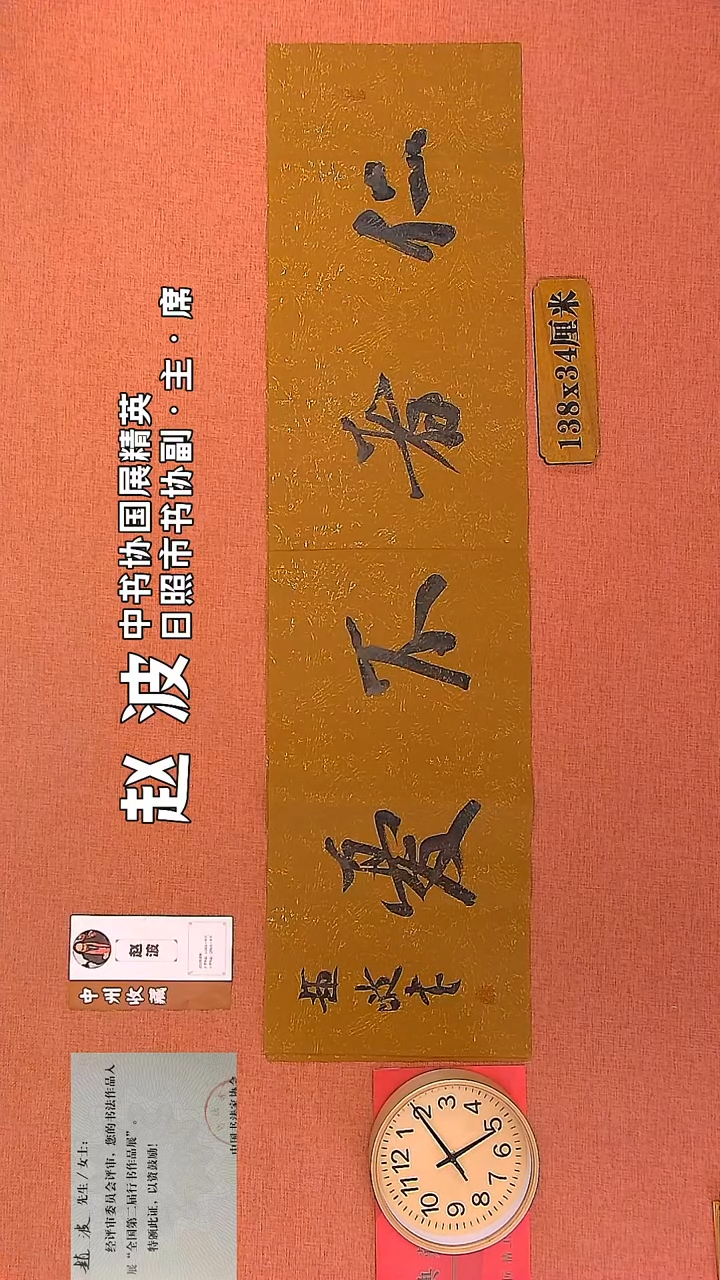 赵波
中书协国展精英
日照市书协副·主·席
仁者不憂
趙波書
138x34厘米
赵波
中州收藏
趙波 先生/女士:
经评审委员会评审，您的书法作品入
展“全国第二届行书作品展”。
特颁此证，以资鼓励！
中国书法家协会
12
1
2
3
4
5
6
7
8
9
10
11